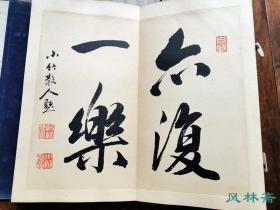 亦復
一樂
小竹散人題
风林斋